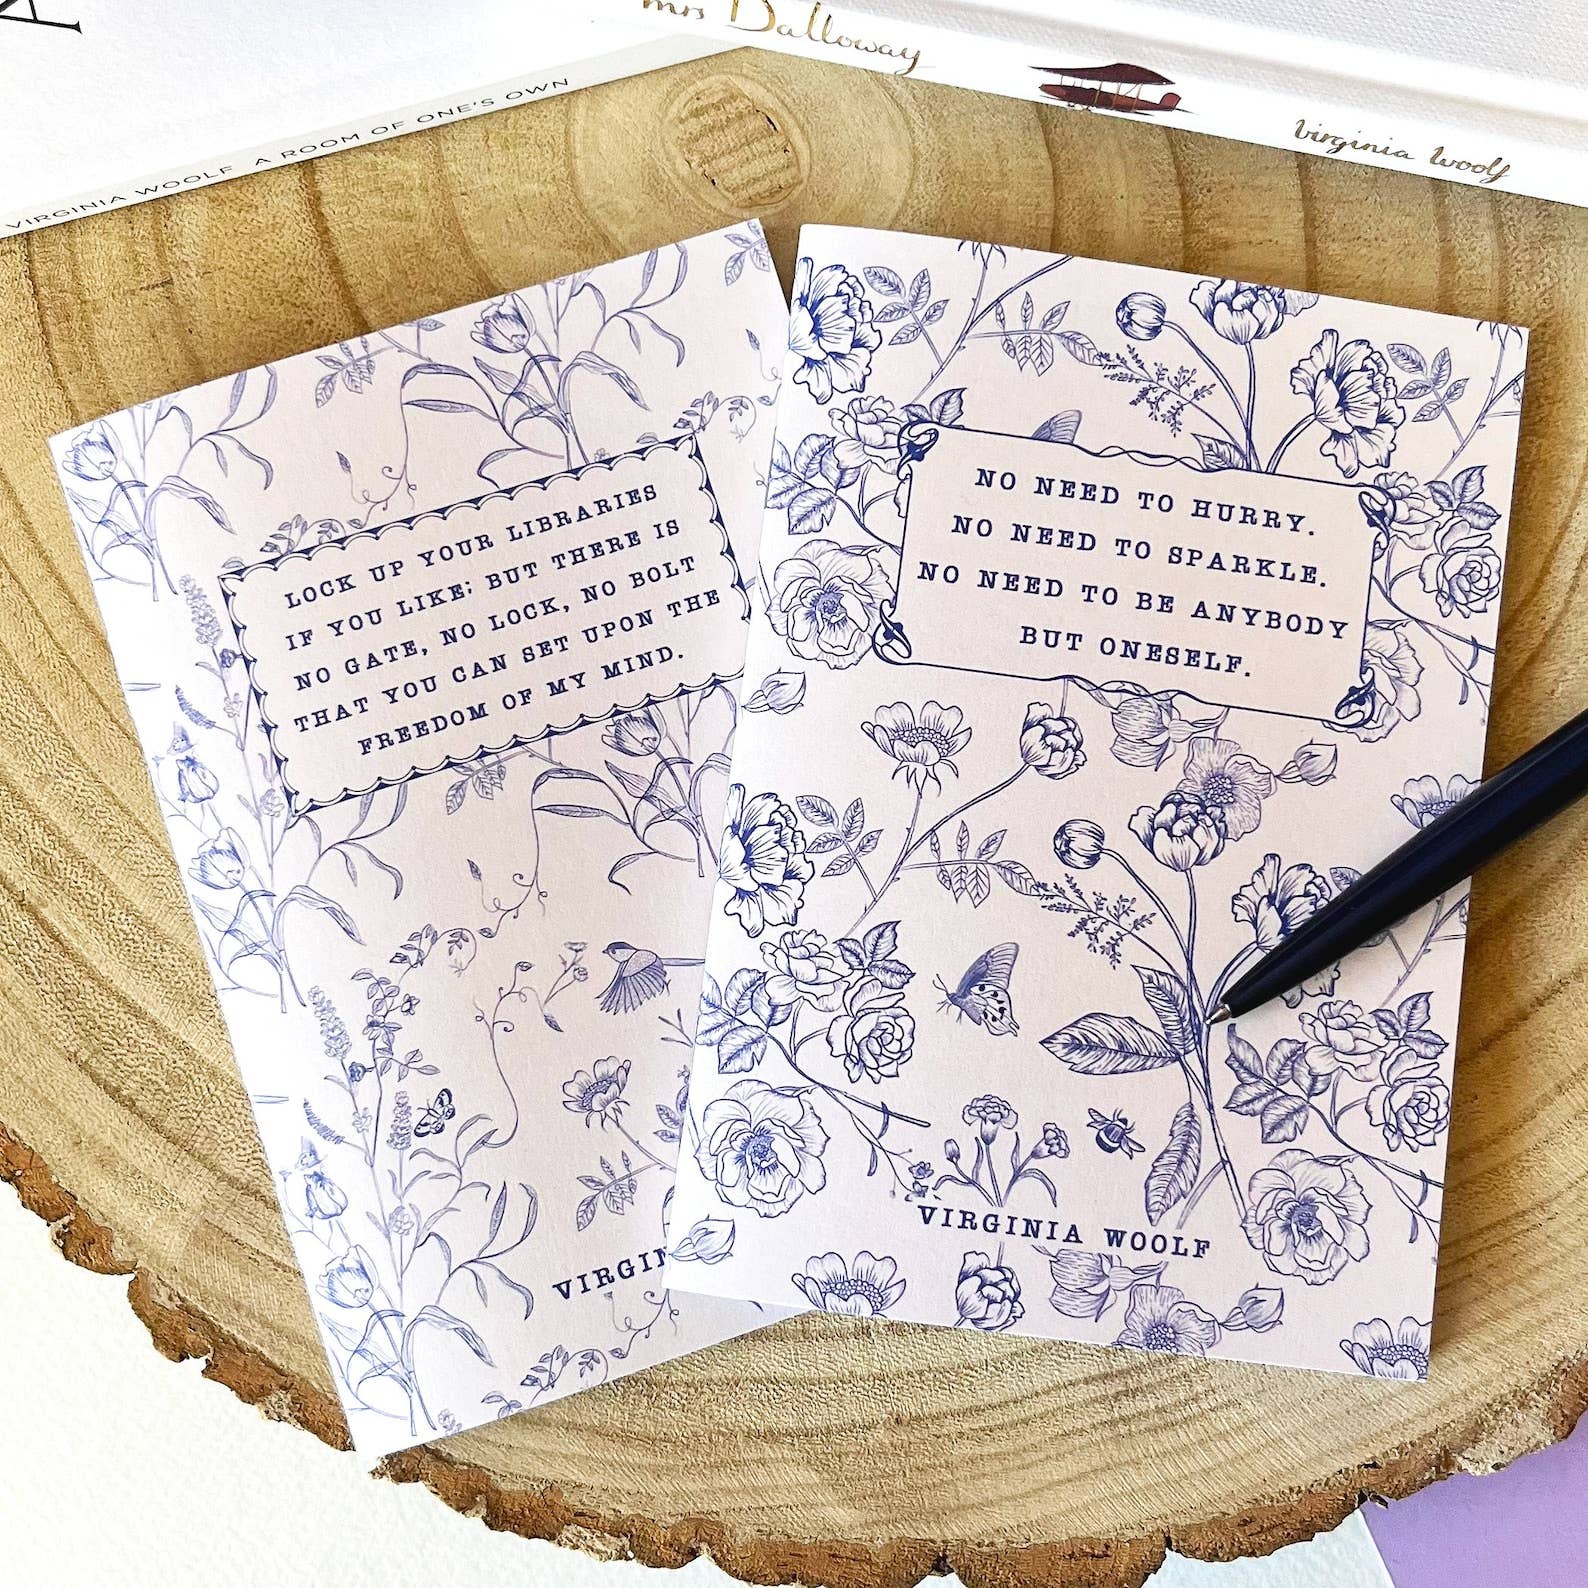 A
VIRGINIA WOOLF A ROOM OF ONE'S OWN
mrs Dalloway
virginia woolf
LOCK UP YOUR LIBRARIES
IF YOU LIKE; BUT THERE IS
NO GATE, NO LOCK, NO BOLT
THAT YOU CAN SET UPON THE
FREEDOM OF MY MIND.
VIRGIN
NO NEED TO HURRY.
NO NEED TO SPARKLE.
NO NEED TO BE ANYBODY
BUT ONESELF.
VIRGINIA WOOLF